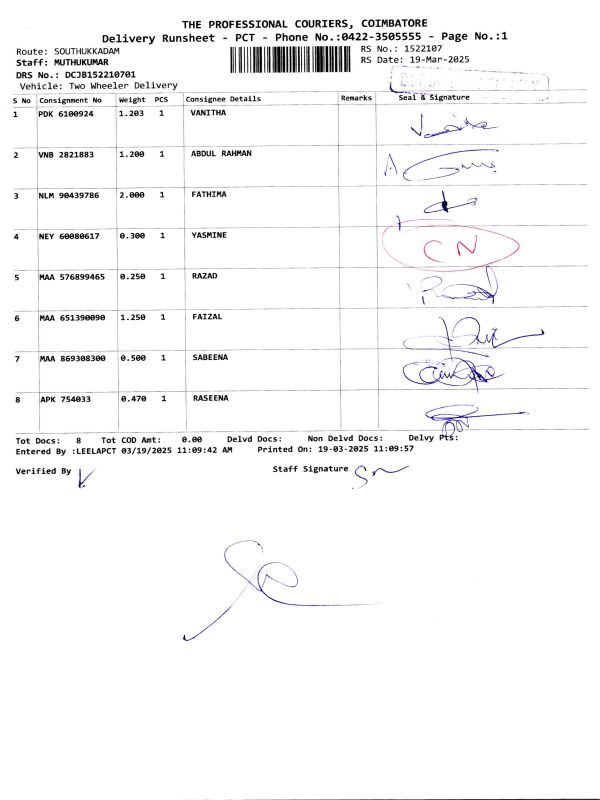 THE PROFESSIONAL COURIERS, COIMBATORE
Delivery Runsheet - PCT - Phone No.:0422-3505555 - Page No.:1
Route: SOUTHUKKADAM
RS No.: 1522107
Staff: MUTHUKUMAR
RS Date: 19-Mar-2025
DRS No.: DCJB152210701
Vehicle: Two Wheeler Delivery
S No Consignment No Weight PCS Consignee Details Remarks Seal & Signature
1 PDK 6100924 1.203 1 VANITHA
2 VNB 2821883 1.200 1 ABDUL RAHMAN
3 NLM 90439786 2.000 1 FATHIMA
4 NEY 60080617 0.300 1 YASMINE CN
5 MAA 576899465 0.250 1 RAZAD
6 MAA 651390090 1.250 1 FAIZAL
7 MAA 869308300 0.500 1 SABEENA
8 APK 754033 0.470 1 RASEENA
Tot Docs: 8 Tot COD Amt: 0.00 Delvd Docs: Non Delvd Docs: Delvy Pts:
Entered By :LEELAPCT 03/19/2025 11:09:42 AM Printed On: 19-03-2025 11:09:57
Verified By Staff Signature